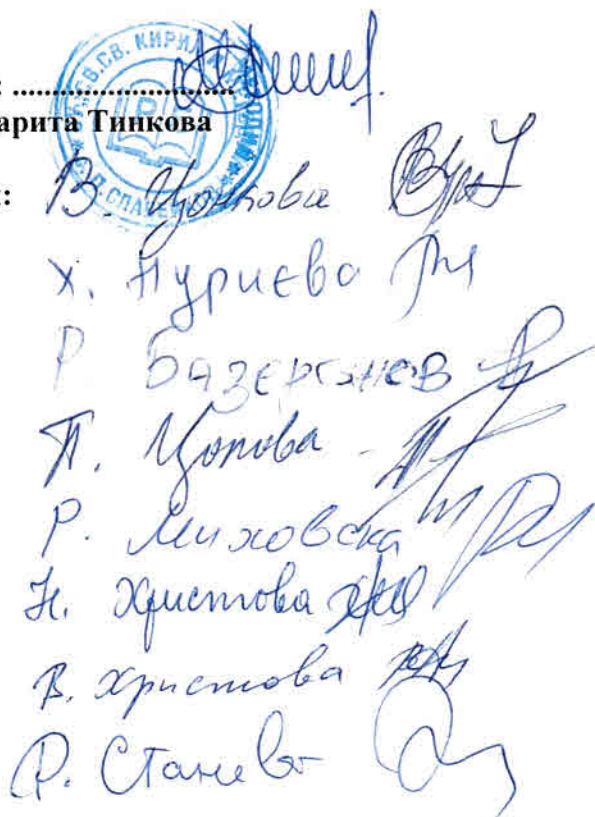 : ..............................
арита Тинкова
СВ.СВ. КИРИЛ И МЕТОДИЙ
:
В. Цонкова
Х. Нуриева
Р. Базергянов
П. Цонова
Р. Миховска
Н. Христова
В. Христова
Р. Станева